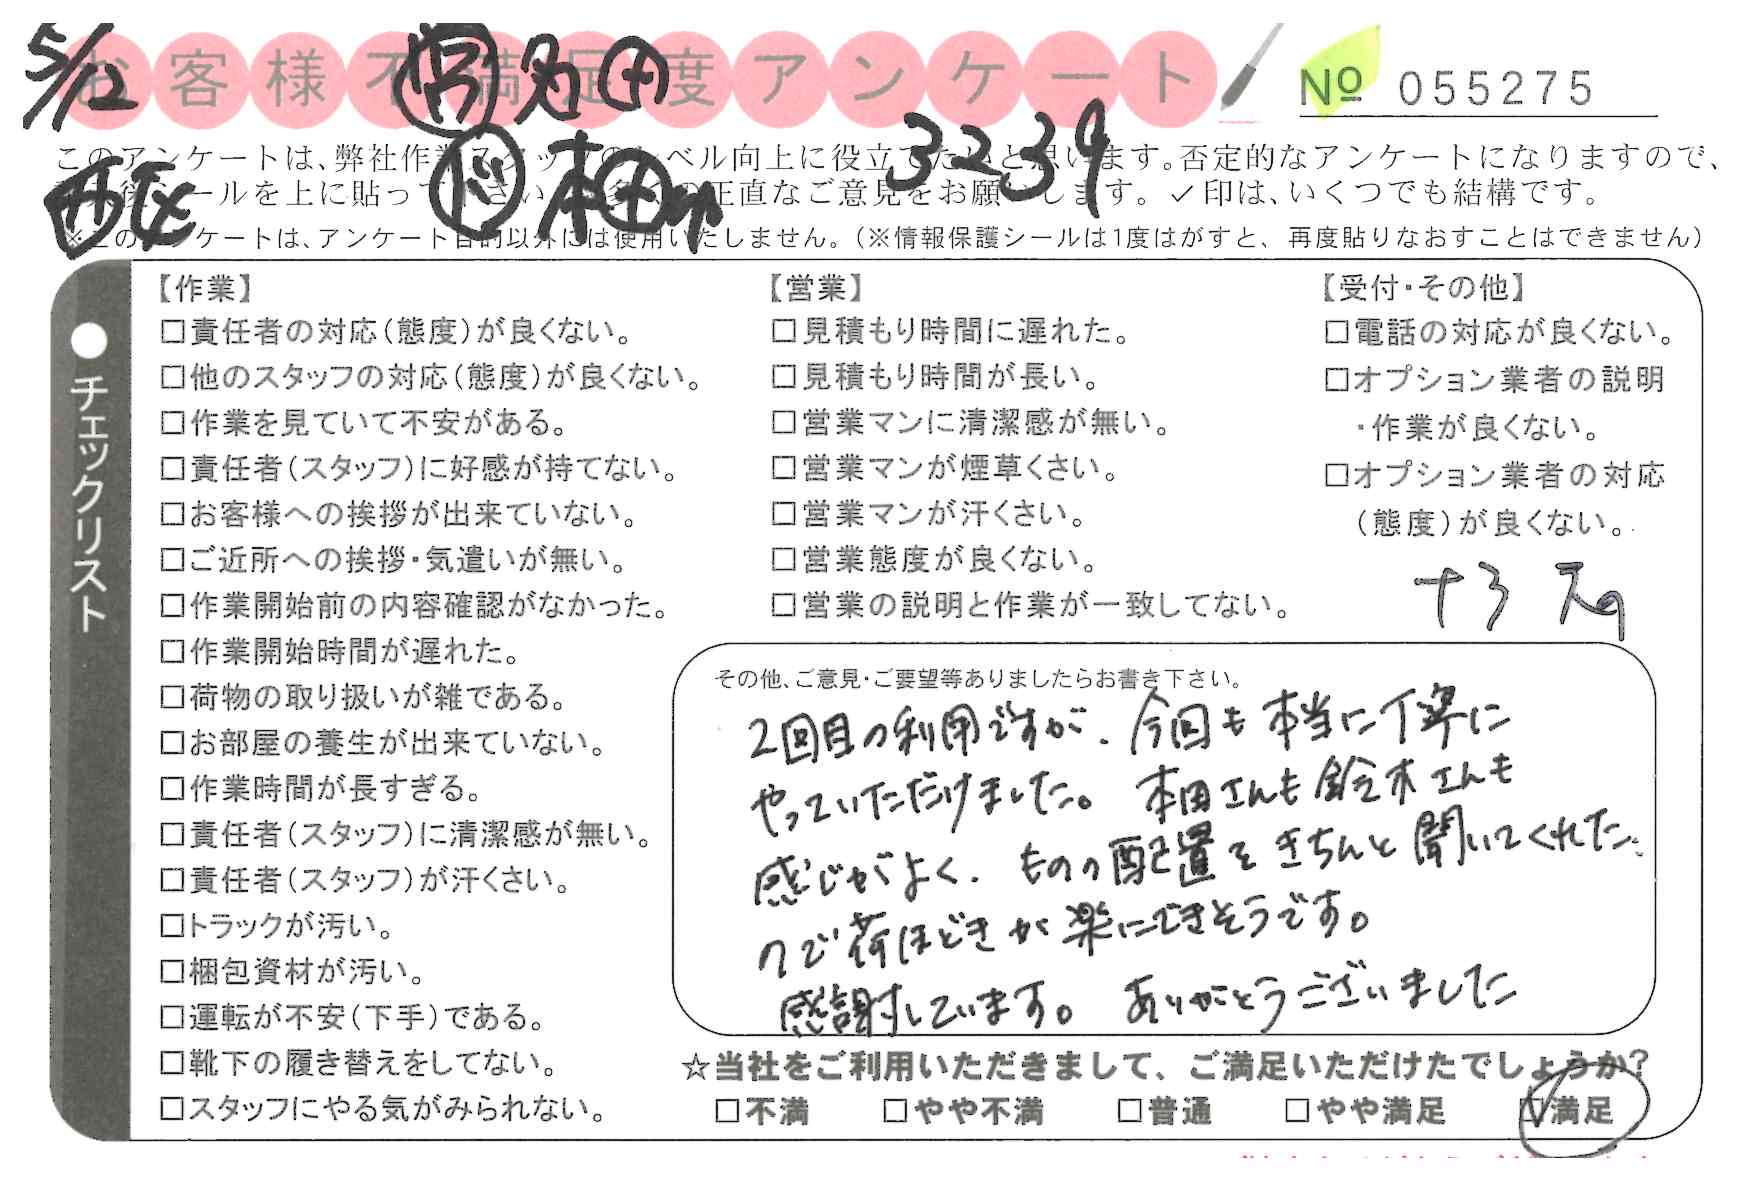 お客様不満足度アンケート
№ 055275
5/12
3239
本田
このアンケートは、弊社作業スタッフのレベル向上に役立てたいと思います。否定的なアンケートになりますので、
シールを上に貼って下さい 多くの正直なご意見をお願いします。✓印は、いくつでも結構です。
※このアンケートは、アンケート目的以外には使用いたしません。(※情報保護シールは1度はがすと、再度貼りなおすことはできません)
●チェックリスト
【作業】
□責任者の対応(態度)が良くない。
□他のスタッフの対応(態度)が良くない。
□作業を見ていて不安がある。
□責任者(スタッフ)に好感が持てない。
□お客様への挨拶が出来ていない。
□ご近所への挨拶・気遣いが無い。
□作業開始前の内容確認がなかった。
□作業開始時間が遅れた。
□荷物の取り扱いが雑である。
□お部屋の養生が出来ていない。
□作業時間が長すぎる。
□責任者(スタッフ)に清潔感が無い。
□責任者(スタッフ)が汗くさい。
□トラックが汚い。
□梱包資材が汚い。
□運転が不安(下手)である。
□靴下の履き替えをしてない。
□スタッフにやる気がみられない。
【営業】
□見積もり時間に遅れた。
□見積もり時間が長い。
□営業マンに清潔感が無い。
□営業マンが煙草くさい。
□営業マンが汗くさい。
□営業態度が良くない。
□営業の説明と作業が一致してない。
【受付・その他】
□電話の対応が良くない。
□オプション業者の説明
・作業が良くない。
□オプション業者の対応
(態度)が良くない。
その他、ご意見・ご要望等ありましたらお書き下さい。
2回目の利用ですが、今回も本当に丁寧に
やっていただけました。本田さんも鈴木さんも
感じがよく、ものの配置をきちんと聞いてくれた
ので荷ほどきが楽にできそうです。
感謝しています。ありがとうございました
☆当社をご利用いただきまして、ご満足いただけたでしょうか?
□不満 □やや不満 □普通 □やや満足 ☑満足